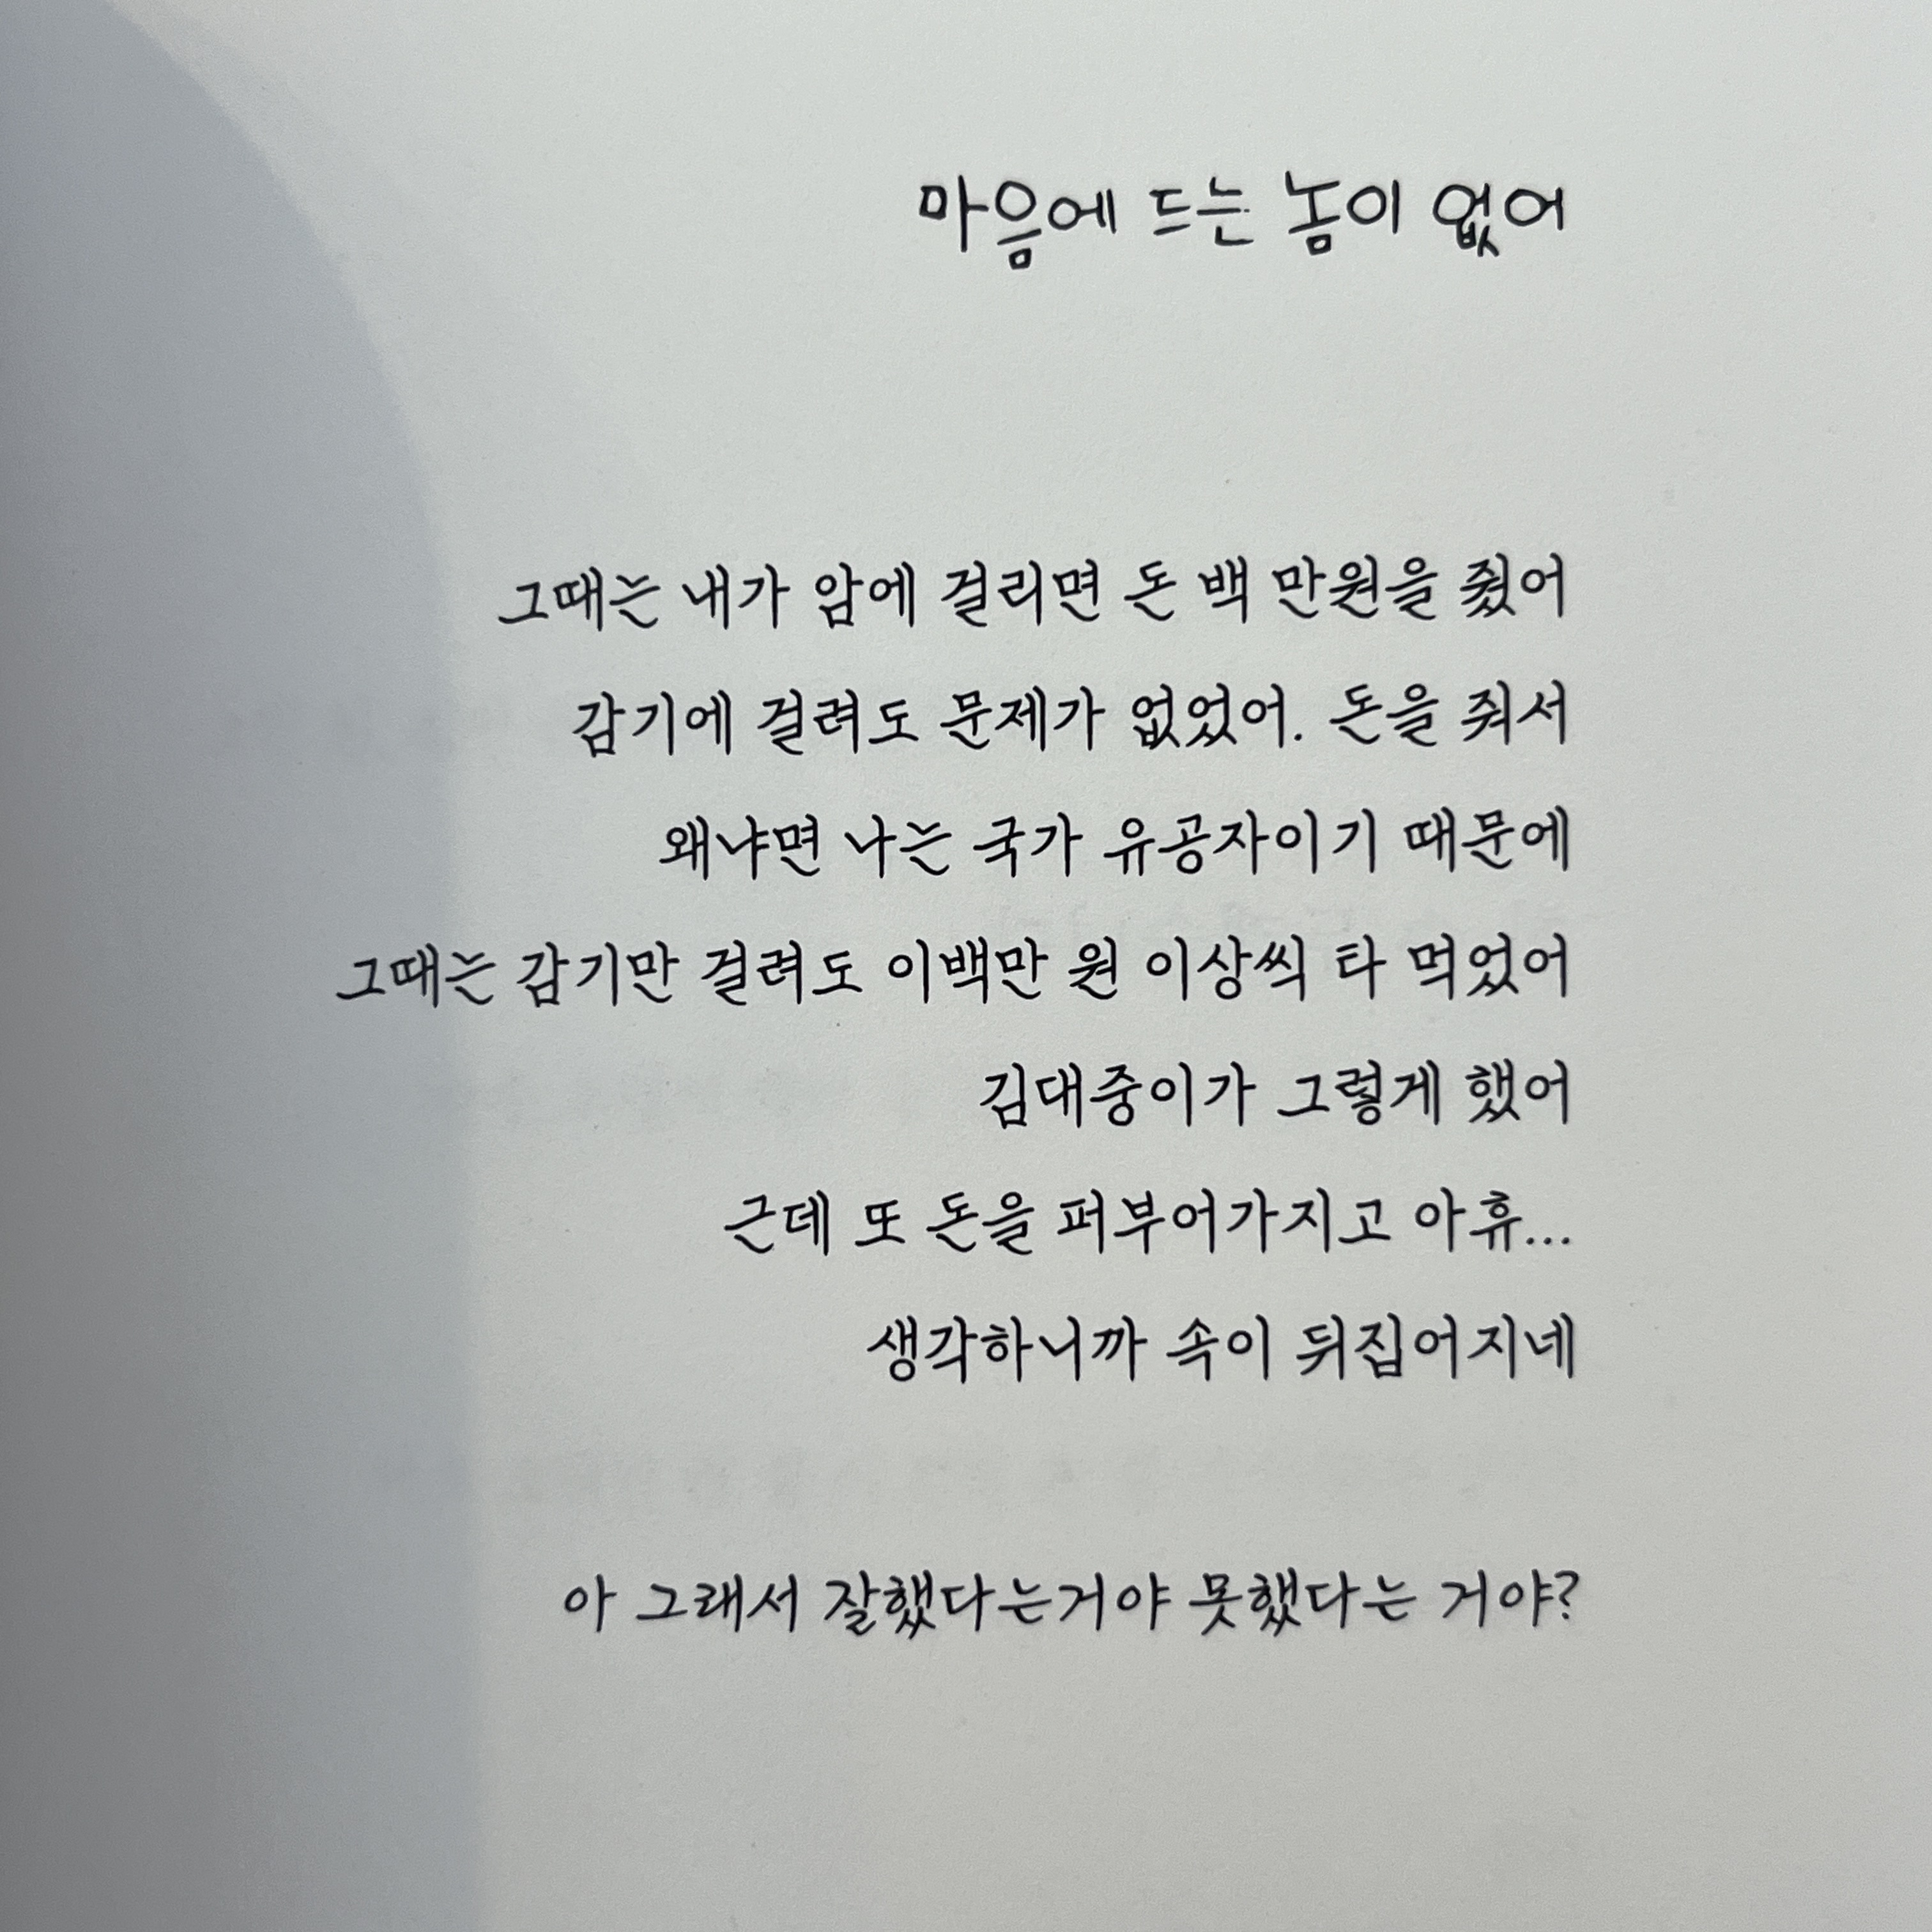 마음에 드는 놈이 없어
그때는 내가 암에 걸리면 돈 백 만원을 줬어
감기에 걸려도 문제가 없었어. 돈을 줘서
왜냐면 나는 국가 유공자이기 때문에
그때는 감기만 걸려도 이백만 원 이상씩 타 먹었어
김대중이가 그렇게 했어
근데 또 돈을 퍼부어가지고 아휴...
생각하니까 속이 뒤집어지네
아 그래서 잘했다는거야 못했다는 거야?